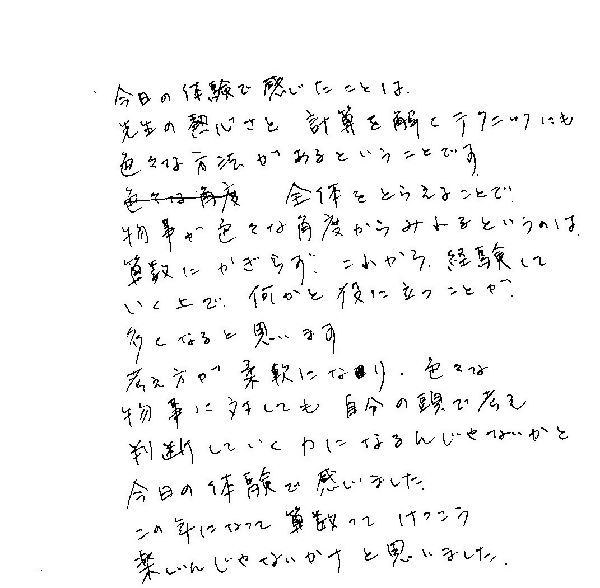 今日の体験で感じたことは、
先生の熱心さと 計算を解くテクニックにも
色々な方法があるということです
色々な角度 全体をとらえることで
物事が色々な角度からみれるというのは、
算数にかぎらず、これから、経験して
いく上で、何かと役に立つことが、
多くなると思います
考え方が柔軟になり、色々な
物事に対しても自分の頭で考え
判断していく力になるんじゃないかと
今日の体験で感いました。
この年になって算数って けっこう
楽しいんじゃないかナと思いました。